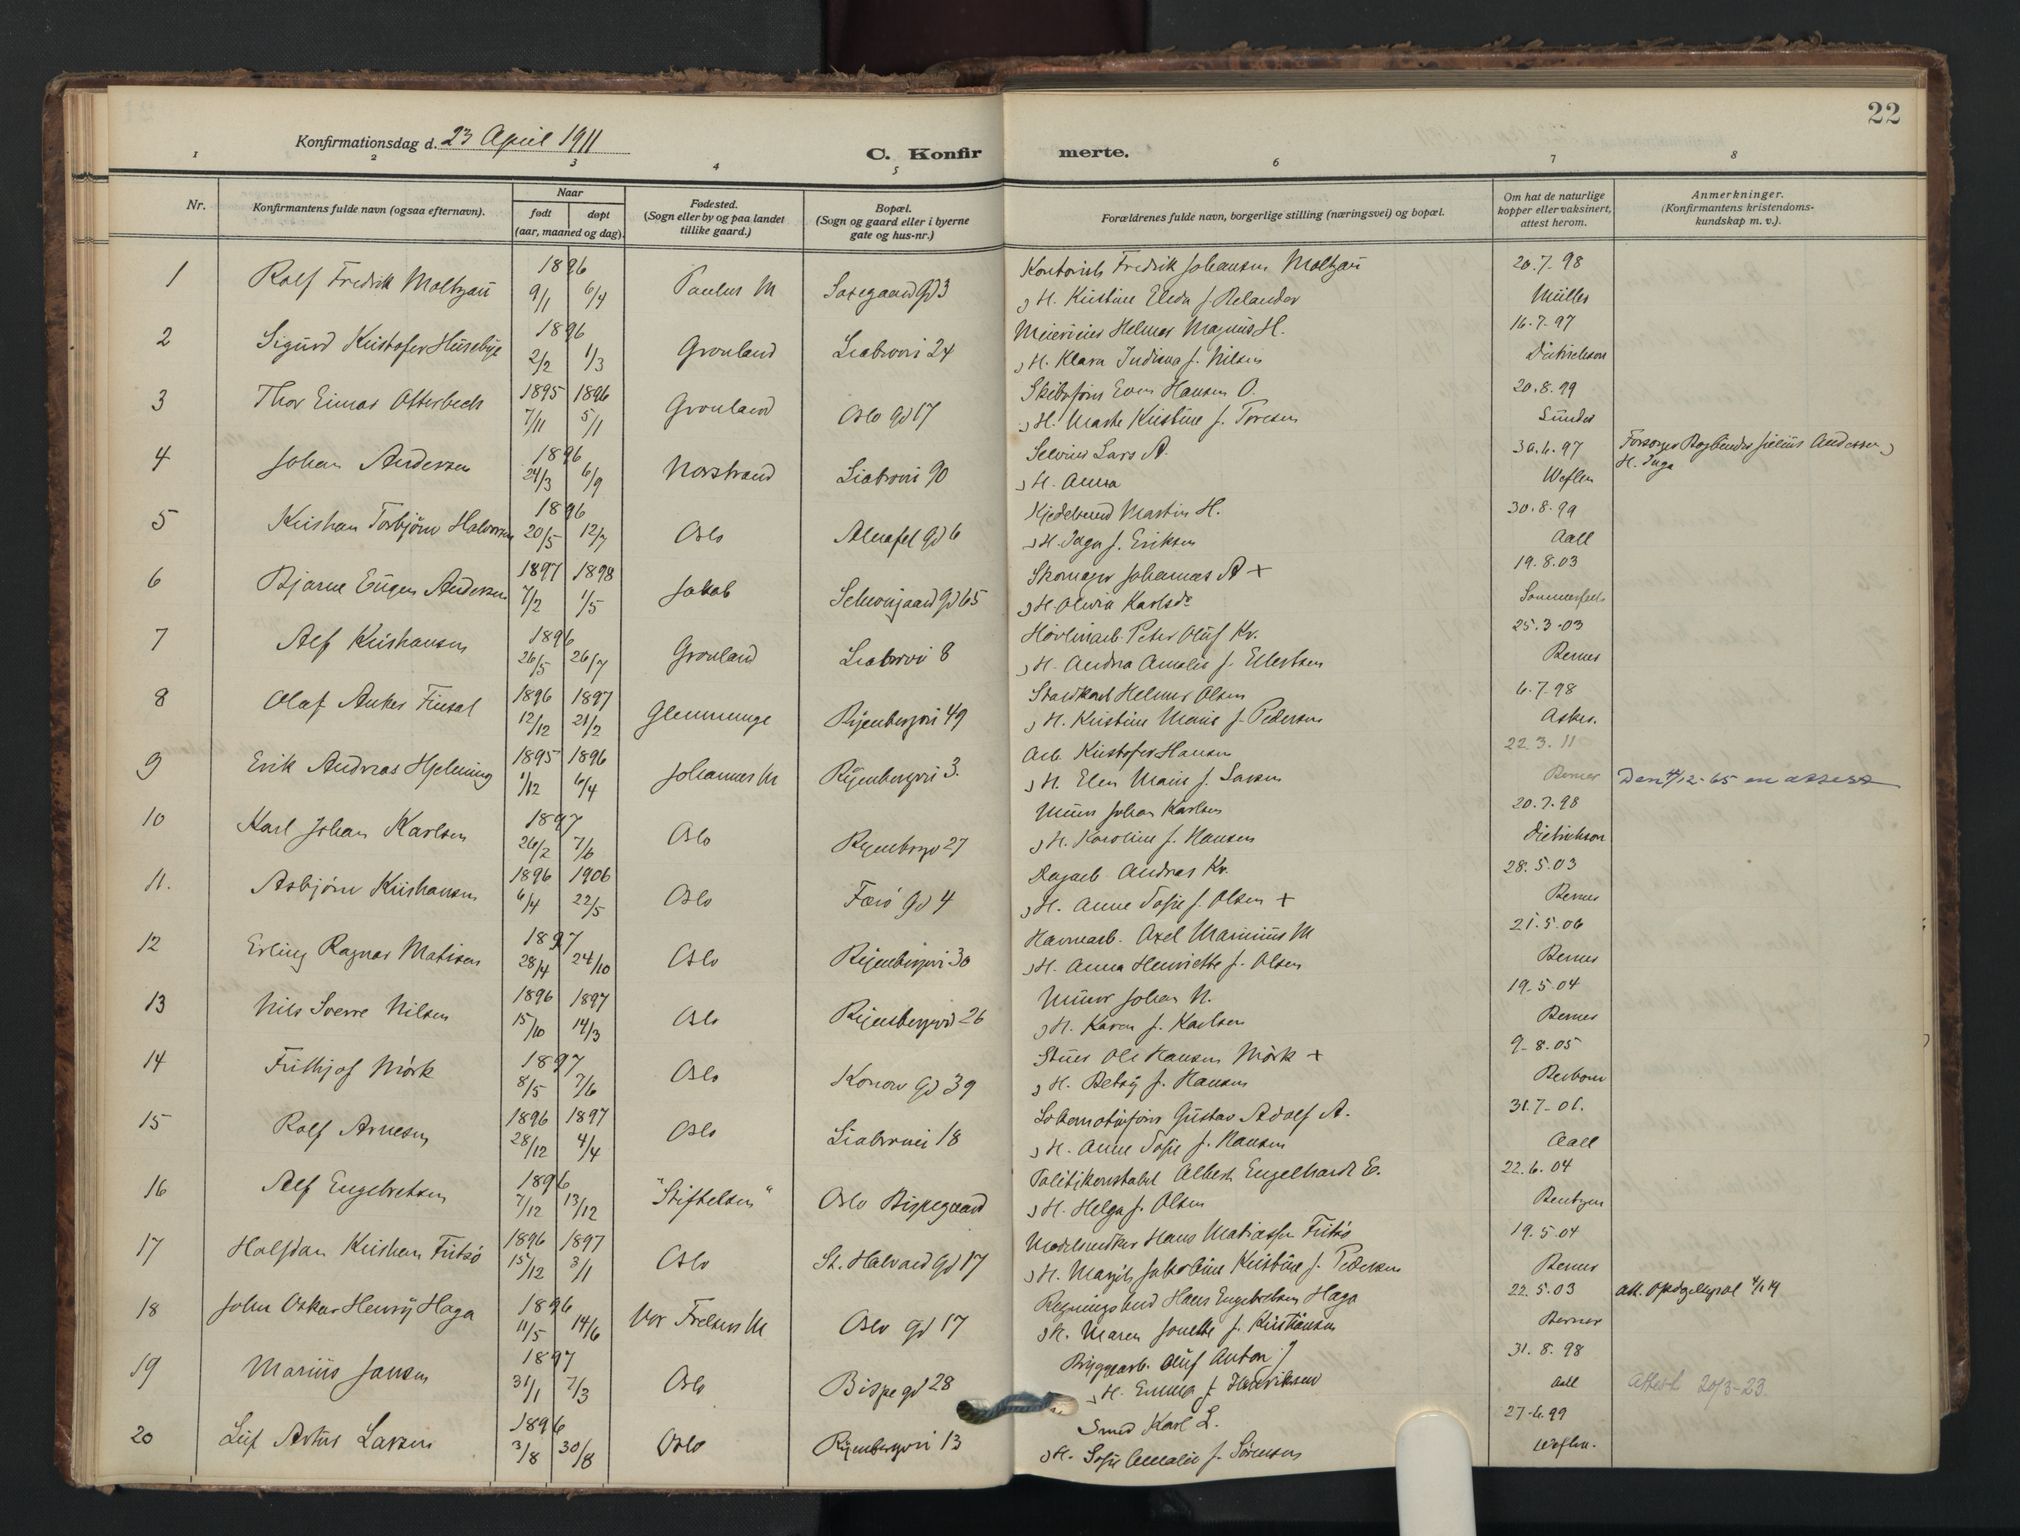 22
Konfirmationsdag d. 23 April 1911
C. Konfir merte.
1 2 3 4 5 6 7 8
Nr. Konfirmantens fulde navn (ogsaa efternavn). Naar født døpt (aar, maaned og dag). Fødested. (Sogn eller by og paa landet tillike gaard.) Bopæl. (Sogn og gaard eller i byerne gate og hus-nr.) Forældrenes fulde navn, borgerlige stilling (næringsvei) og bopæl. Om hat de naturlige kopper eller vaksinert, attest herom. Anmerkninger. (Konfirmantens kristendomskundskap m. v.)
1 Rolf Fredrik Moltzau 1896 9/1 6/4 Paulus M Saxegaard Gd 3 Fredrik Johansen Moltzau 20.7-98
H. Kristine Eleda f. Relander Müller
2 Sigurd Kristofer Huseby 1896 2/2 1/3 Grønland Liabrovei 24 Meierieier Helmer Magnus H. 16.7-97
H. Klara Indiana f. Nilsen Dietrichson
3 Thor Einar Otterbech 1895 1896 7/11 5/1 Grønland Oslo Gd 17 Even Hansen O. 20.8.99
H. Marthe Kristine f. Toresen Sunder
4 Johan Andersen 1896 24/3 6/9 Norstrand Liabrovei 90 Lars A. 30.6.97 Julius Andersen
H. Anna Weflen H. Inga
5 Kristian Torbjørn Halvorsen 1896 20/5 12/7 Oslo Alnafet Gd 6 Martin H. 30.8.99
H. Inga f. Eriksen Aall
6 Bjarne Eugen Andersen 1897 1898 7/2 1/5 Jakob Schweigaard Gd 65 Skomager Johannes A + 19.8.03
H. Olivia Karlsdr Sommerfelt
7 Alf Kristiansen 1896 26/5 26/7 Grønland Liabrovei 8 Høvleriarb. Peter Oluf Kr. 25.3-03
H. Andrea Amalie f. Ellertsen Berner
8 Olaf Anker Finsal 1896 1897 12/12 21/2 Glemminge Ryenbergvei 49 Helmer Olsen 6.7-98
H. Kristine Marie f. Pedersen Asker.
9 Erik Andreas Hjelming 1895 1896 1/12 6/4 Johannes M Ryenbergvei 3. Arb. Kristofer Hansen 22.3.11
H. Elen Marie f. Larsen Berner Den 4/12-65 en attest
10 Karl Johan Karlsen 1897 26/2 7/6 Oslo Ryenbergv 27 Murer Johan Karlsen 20.7-98
H. Karoline f. Hansen Dietrichson
11. Asbjørn Kristiansen 1896 1906 6/4 22/5 Oslo Færø Gd 4 Dagarb. Andreas Kr. 28.5.03
H. Anne Sofie f. Olsen + Berner
12 Erling Ragnar Matisen 1897 28/4 24/10 Oslo Ryenbergvei 30 Havnearb. Axel Marinius M 21.5.06
H. Anna Henriette f. Olsen Berner
13 Nils Sverre Nilsen 1896 1897 15/10 14/3 Oslo Ryenbergvei 26 Murer Johan N. 19.5.04
H. Karen f. Karlsen Berner
14 Frithjof Mørk 1897 8/5 7/6 Oslo Konow Gd 39 Stuer Ole Hansen Mørk + 9-8.05
H. Betsy f. Hansen
15 Rolf Arnesen 1896 1897 28/12 4/4 Oslo Liabrovei 18 Lokomotivfører Gustav Adolf A. 31.7-01.
H. Anne Sofie f. Hansen Aall
16 Alf Engebretsen 1896 7/12 13/12 "Stiftelsen" Oslo Bispegaard Politikonstabel Albert Engelhardt E. 22.6.04
H. Helga f. Olsen Bentzen
17 Halfdan Kristian Fritsø 1896 1897 15/12 3/1 Oslo St. Halvard Gd 17 Modelsnedker Hans Matiassen Fritsø 19.5.04
H. Margit Jakobine Kristine f. Pedersen Berner
18 John Oskar Henry Haga 1896 11/5 14/6 Vor Frelsers M Oslo gd 17 Regningsbud Hans Engebretsen Haga 22.5.03 4/1 19
H. Maren Jonette f. Kristiansen Berner
19 Marius Jansen 1897 31/1 7/3 Oslo Bispegd 28 Bryggearb. Oluf Anton J 31.8.98
H. Emma f Henriksen Aall Attest 20/3-23.
20 Leif Artur Larsen 1896 3/8 30/8 Oslo Ryenbergvei 13 Smed Karl L. 27-6.99
H. Sofie Amalie f. Sørensen Weflen.